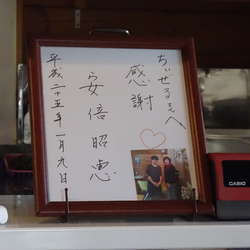 ちいせるもへ
感謝
安倍昭恵
平成二十五年一月九日
CASIO